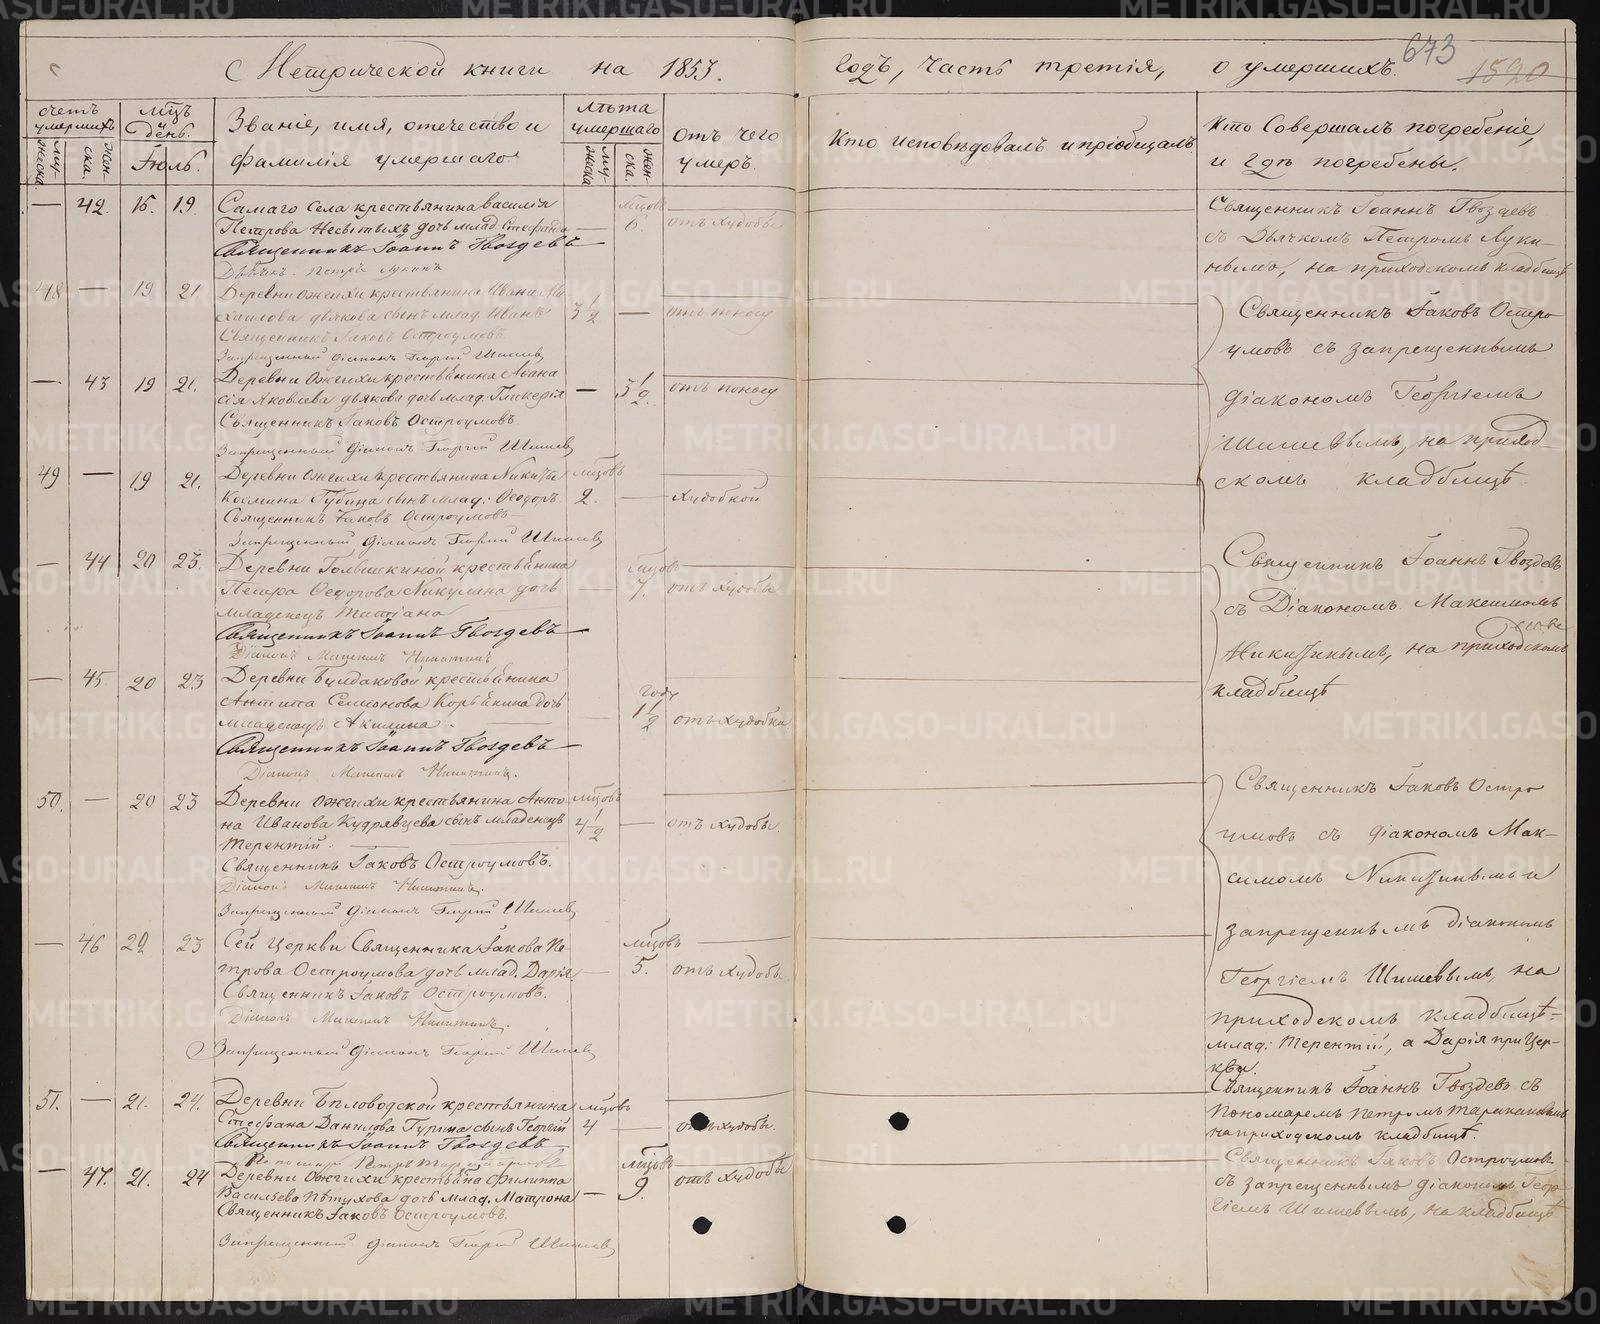 Метрической книги на 1853. годъ, часть третія, о умершихъ.
673
1520
счетъ умершихъ
мужеска.
женска.
мцъ и день.
Іюль.
Званіе, имя, отечество и
фамилія умершаго
лѣта умершаго
мужеска
женска.
отъ чего
умеръ.
Кто исповѣдовалъ и пріобщалъ
Кто Совершалъ погребеніе,
и гдѣ погребены.
— 42. 15. 19.
Самаго Села крестьянина Василія
Петрова Несытыхъ дочь млад. Стефанида
мцовъ
— 6. отъ худобы
Священникъ Іоаннъ Гвоздевъ
Дьячекъ Петръ Лукинъ
Священникъ Іоаннъ Гвоздевъ
съ Дьячкомъ Петромъ Луки-
нымъ, на приходскомъ кладбищѣ
48 — 19 21.
Деревни Ожгихи крестьянина Ивана Ми
хаилова дьякова сынъ млад. Иванъ
3 1/2 — отъ поносу
Священникъ Іаковъ Остроумовъ.
Запрещенный діаконъ Георгій Шишевъ
— 43 19 21.
Деревни Ожгихи крестьянина Афана
сія Яковлева дьякова дочь млад. Гликерія
— 3 1/2. отъ поносу
Священникъ Іаковъ Остроумовъ.
Запрещенный Діаконъ Георгій Шишевъ
49 — 19 21.
Деревни Ожгихи крестьянина Никиты
Космина Губина сынъ млад: Феодоръ.
мцовъ
2. — Худобкой
Священникъ Іаковъ Остроумовъ
Запрещенный діаконъ Георгій Шишевъ
Священникъ Іаковъ Остро
умовъ съ запрещеннымъ
діакономъ Георгіемъ
Шишевымъ, на приход-
скомъ кладбищѣ
— 44 20 23.
Деревни крестьянина
Петра Федорова Никулина дочь
младенецъ Татіана
мцовъ
— 7. отъ худобы
Священникъ Іоаннъ Гвоздевъ
Діаконъ Максимъ Никитинъ
— 45 20 23
Деревни Булдаковой крестьянина
Антипа Семионова Корякина дочь
младенецъ Акилина.
году
— 1 1/2 отъ худобы
Священникъ Іоаннъ Гвоздевъ
Діаконъ Максимъ Никитинъ.
Священникъ Іоаннъ Гвоздевъ
съ Діакономъ Максимомъ
Никитинымъ, на приходскомъ
кладбищѣ
50. — 20 23
Деревни Ожгихи крестьянина Анто-
на Иванова Кудрявцева сынъ младенецъ
Терентій.
мцовъ
4 1/2 — отъ худобы.
Священникъ Іаковъ Остроумовъ.
Діаконъ Максимъ Никитинъ.
Запрещенный діаконъ Георгій Шишевъ
— 46 20 23
Сей Церкви Священника Іакова Пе-
трова Остроумова дочь млад. Дарія
мцовъ
— 5. отъ худобы
Священникъ Іаковъ Остроумовъ.
Діаконъ Максимъ Никитинъ.
Запрещенный діаконъ Георгій Шишевъ
Священникъ Іаковъ Остро
умовъ съ діакономъ Мак-
симомъ Никитинымъ и
запрещеннымъ діакономъ
Георгіемъ Шишевымъ, на
приходскомъ кладбищѣ =
млад: Терентій, а Дарія при Цер-
кви.
51. — 21. 24.
Деревни Бѣловодской крестьянина
Стефана Данилова Гурина сынъ Георгій
мцовъ
4 — отъ худобы.
Священникъ Іоаннъ Гвоздевъ
Священникъ Іоаннъ Гвоздевъ съ
пономаремъ Петромъ
на приходскомъ кладбищѣ.
— 47. 21. 24
Деревни Ожгихи крестьянина Филиппа
Васильева Пѣтухова дочь млад. Матрона
мцовъ
— 9. отъ худобы
Священникъ Іаковъ Остроумовъ.
Запрещенный діаконъ Георгій Шишевъ
Священникъ Іаковъ Остроумовъ
съ запрещеннымъ діакономъ Геор-
гіемъ Шишевымъ, на кладбищѣ
METRIKI.GASO-URAL.RU